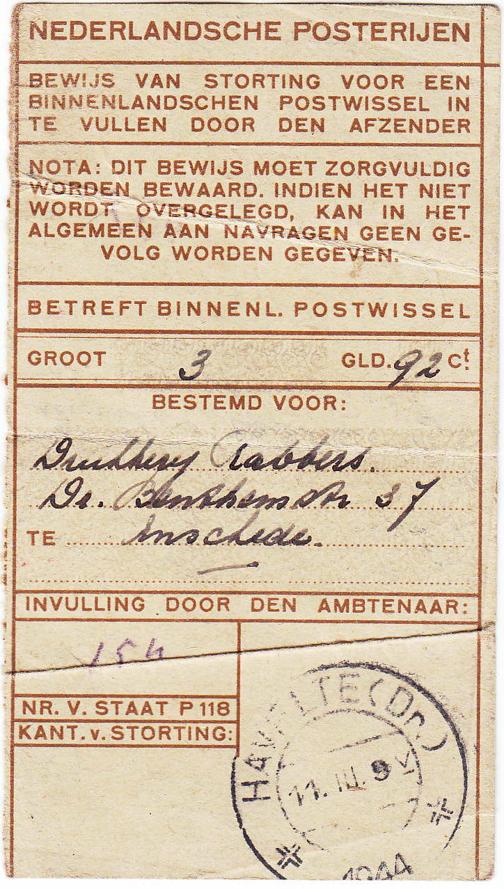 NEDERLANDSCHE POSTERIJEN
BEWIJS VAN STORTING VOOR EEN
BINNENLANDSCHEN POSTWISSEL IN
TE VULLEN DOOR DEN AFZENDER
NOTA: DIT BEWIJS MOET ZORGVULDIG
WORDEN BEWAARD. INDIEN HET NIET
WORDT OVERGELEGD, KAN IN HET
ALGEMEEN AAN NAVRAGEN GEEN GE-
VOLG WORDEN GEGEVEN.
BETREFT BINNENL. POSTWISSEL
GROOT 3 GLD. 92 Ct.
BESTEMD VOOR:
Drukkerij Rabbers.
Dr. Benthemstr 37
TE Enschede.
INVULLING DOOR DEN AMBTENAAR:
154
NR. V. STAAT P 118
KANT. v. STORTING:
HAVELTE (Dr.)
11. III. 9
1944